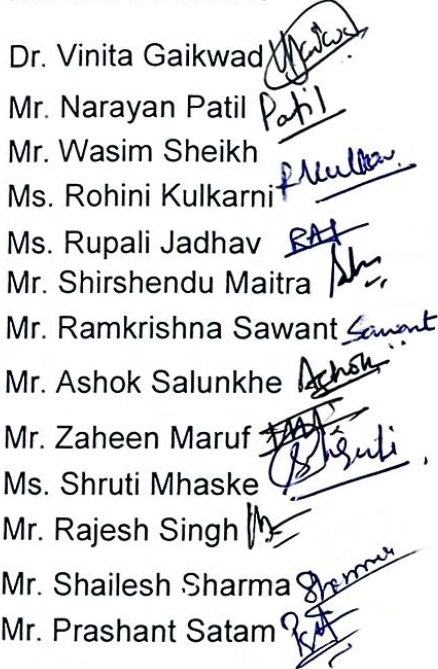 Dr. Vinita Gaikwad
Mr. Narayan Patil Patil
Mr. Wasim Sheikh
Ms. Rohini Kulkarni
Ms. Rupali Jadhav
Mr. Shirshendu Maitra
Mr. Ramkrishna Sawant Sawant
Mr. Ashok Salunkhe Ashok
Mr. Zaheen Maruf
Ms. Shruti Mhaske Shruti
Mr. Rajesh Singh
Mr. Shailesh Sharma Sharma
Mr. Prashant Satam